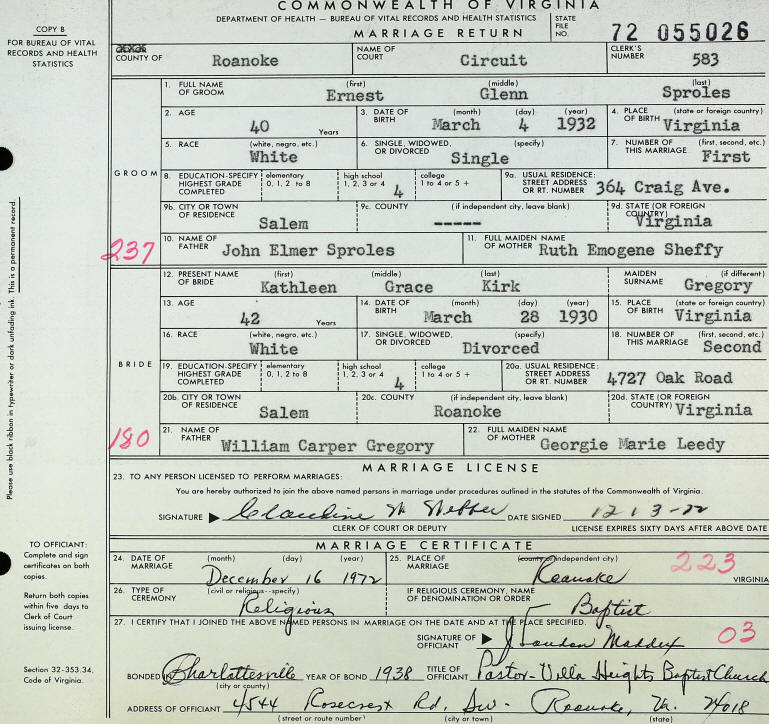 COMMONWEALTH OF VIRGINIA
DEPARTMENT OF HEALTH — BUREAU OF VITAL RECORDS AND HEALTH STATISTICS
MARRIAGE RETURN
STATE FILE NO. 72 055026
COPY B
FOR BUREAU OF VITAL RECORDS AND HEALTH STATISTICS
COUNTY OF Roanoke NAME OF COURT Circuit CLERK'S NUMBER 583
GROOM
1. FULL NAME OF GROOM (first) Ernest (middle) Glenn (last) Sproles
2. AGE 40 Years 3. DATE OF BIRTH (month) March (day) 4 (year) 1932 4. PLACE OF BIRTH (state or foreign country) Virginia
5. RACE (white, negro, etc.) White 6. SINGLE, WIDOWED, OR DIVORCED (specify) Single 7. NUMBER OF THIS MARRIAGE (first, second, etc.) First
8. EDUCATION-SPECIFY HIGHEST GRADE COMPLETED elementary 0, 1, 2 to 8 high school 1, 2, 3 or 4 4 college 1 to 4 or 5 + 9a. USUAL RESIDENCE: STREET ADDRESS OR RT. NUMBER 364 Craig Ave.
9b. CITY OR TOWN OF RESIDENCE Salem 9c. COUNTY (if independent city, leave blank) ----- 9d. STATE (OR FOREIGN COUNTRY) Virginia
237
10. NAME OF FATHER John Elmer Sproles 11. FULL MAIDEN NAME OF MOTHER Ruth Emogene Sheffy
BRIDE
12. PRESENT NAME OF BRIDE (first) Kathleen (middle) Grace (last) Kirk MAIDEN SURNAME (if different) Gregory
13. AGE 42 Years 14. DATE OF BIRTH (month) March (day) 28 (year) 1930 15. PLACE OF BIRTH (state or foreign country) Virginia
16. RACE (white, negro, etc.) White 17. SINGLE, WIDOWED, OR DIVORCED (specify) Divorced 18. NUMBER OF THIS MARRIAGE (first, second, etc.) Second
19. EDUCATION-SPECIFY HIGHEST GRADE COMPLETED elementary 0, 1, 2 to 8 high school 1, 2, 3 or 4 4 college 1 to 4 or 5 + 20a. USUAL RESIDENCE: STREET ADDRESS OR RT. NUMBER 4727 Oak Road
20b. CITY OR TOWN OF RESIDENCE Salem 20c. COUNTY (if independent city, leave blank) Roanoke 20d. STATE (OR FOREIGN COUNTRY) Virginia
180
21. NAME OF FATHER William Carper Gregory 22. FULL MAIDEN NAME OF MOTHER Georgie Marie Leedy
MARRIAGE LICENSE
23. TO ANY PERSON LICENSED TO PERFORM MARRIAGES:
You are hereby authorized to join the above named persons in marriage under procedures outlined in the statutes of the Commonwealth of Virginia.
SIGNATURE Claudine W DATE SIGNED
CLERK OF COURT OR DEPUTY LICENSE EXPIRES SIXTY DAYS AFTER ABOVE DATE
MARRIAGE CERTIFICATE
24. DATE OF MARRIAGE (month) December (day) 16 (year) 1972 25. PLACE OF MARRIAGE (county or independent city) Roanoke 223 VIRGINIA
26. TYPE OF CEREMONY (civil or religious--specify) Religious IF RELIGIOUS CEREMONY, NAME OF DENOMINATION OR ORDER Baptist
27. I CERTIFY THAT I JOINED THE ABOVE NAMED PERSONS IN MARRIAGE ON THE DATE AND AT THE PLACE SPECIFIED.
SIGNATURE OF OFFICIANT J. Maddex 03
BONDED IN Charlottesville (city or county) YEAR OF BOND 1938 TITLE OF OFFICIANT Pastor-Villa Heights Baptist Church
ADDRESS OF OFFICIANT 4544 Rosecrest Rd. Sw. Roanoke, Va. 24018
(street or route number) (city or town) (state)
Please use black ribbon in typewriter or dark unfading ink. This is a permanent record.
TO OFFICIANT:
Complete and sign certificates on both copies.
Return both copies within five days to Clerk of Court issuing license.
Section 32-353.34, Code of Virginia.